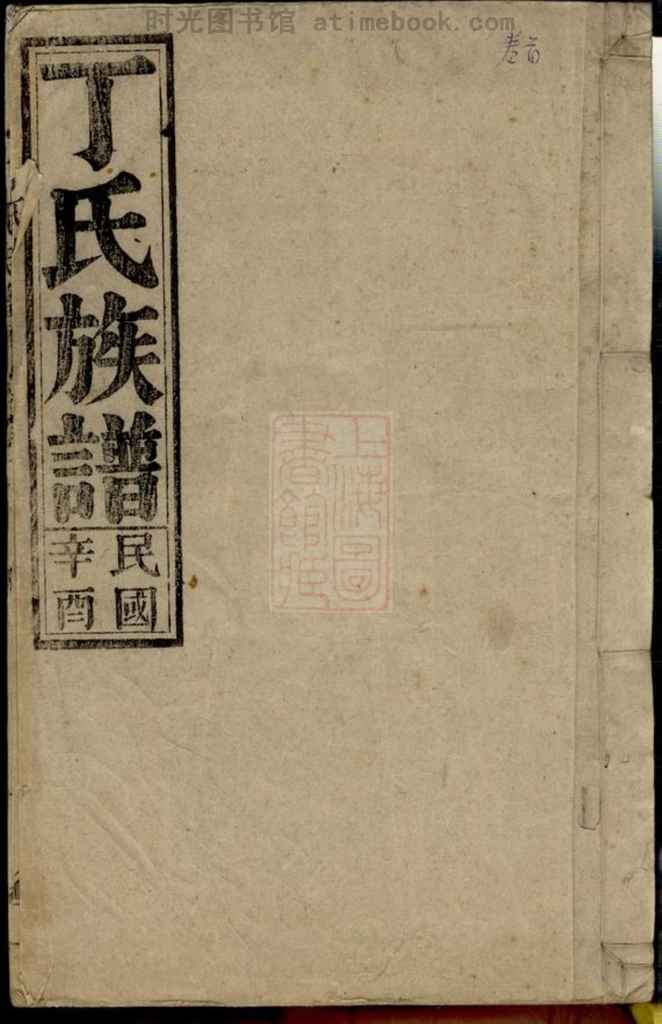 时光图书馆 atimebook.com
卷首
丁氏族譜
民國
辛酉
上海圖
書館藏